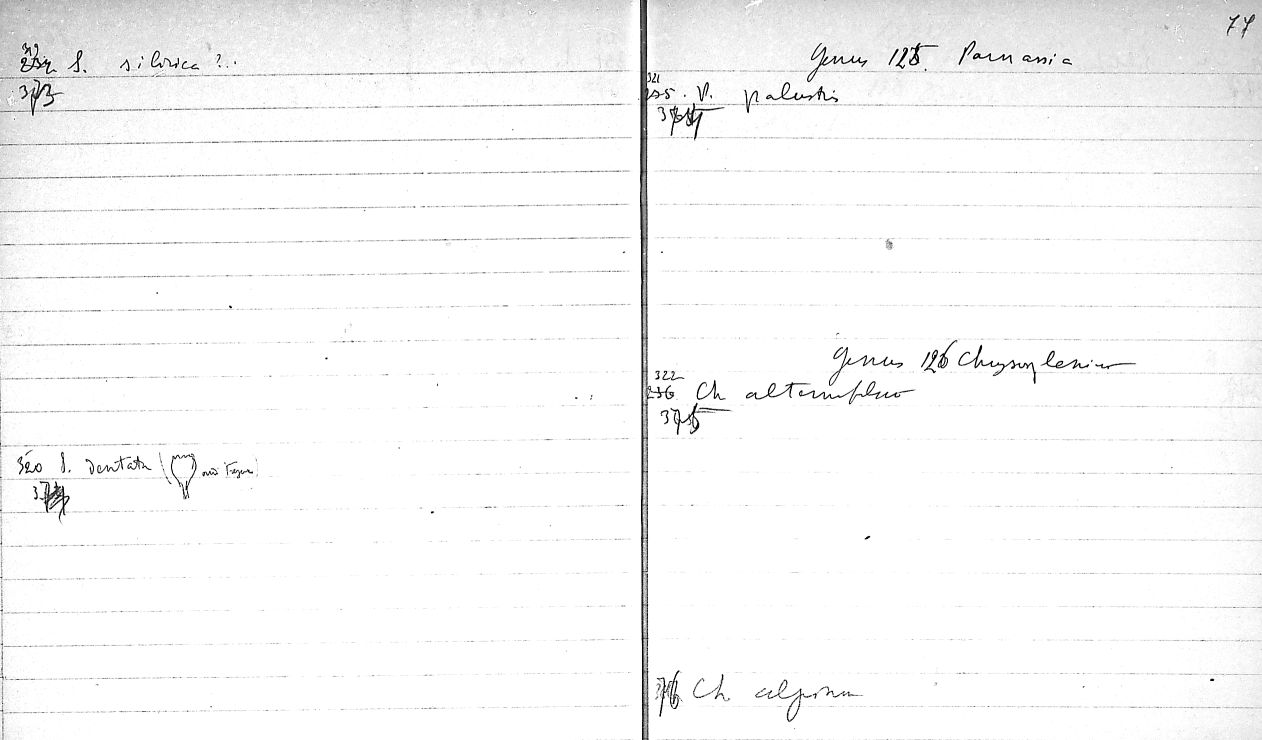 319
S. sibirica ?..
373
320 S. dentata (
77
Genus 125. Parnassia
321
235. P. palustris
Genus 126 Chrysosplenium
322
236 Ch alterniflum
375
376 Ch. alpinum